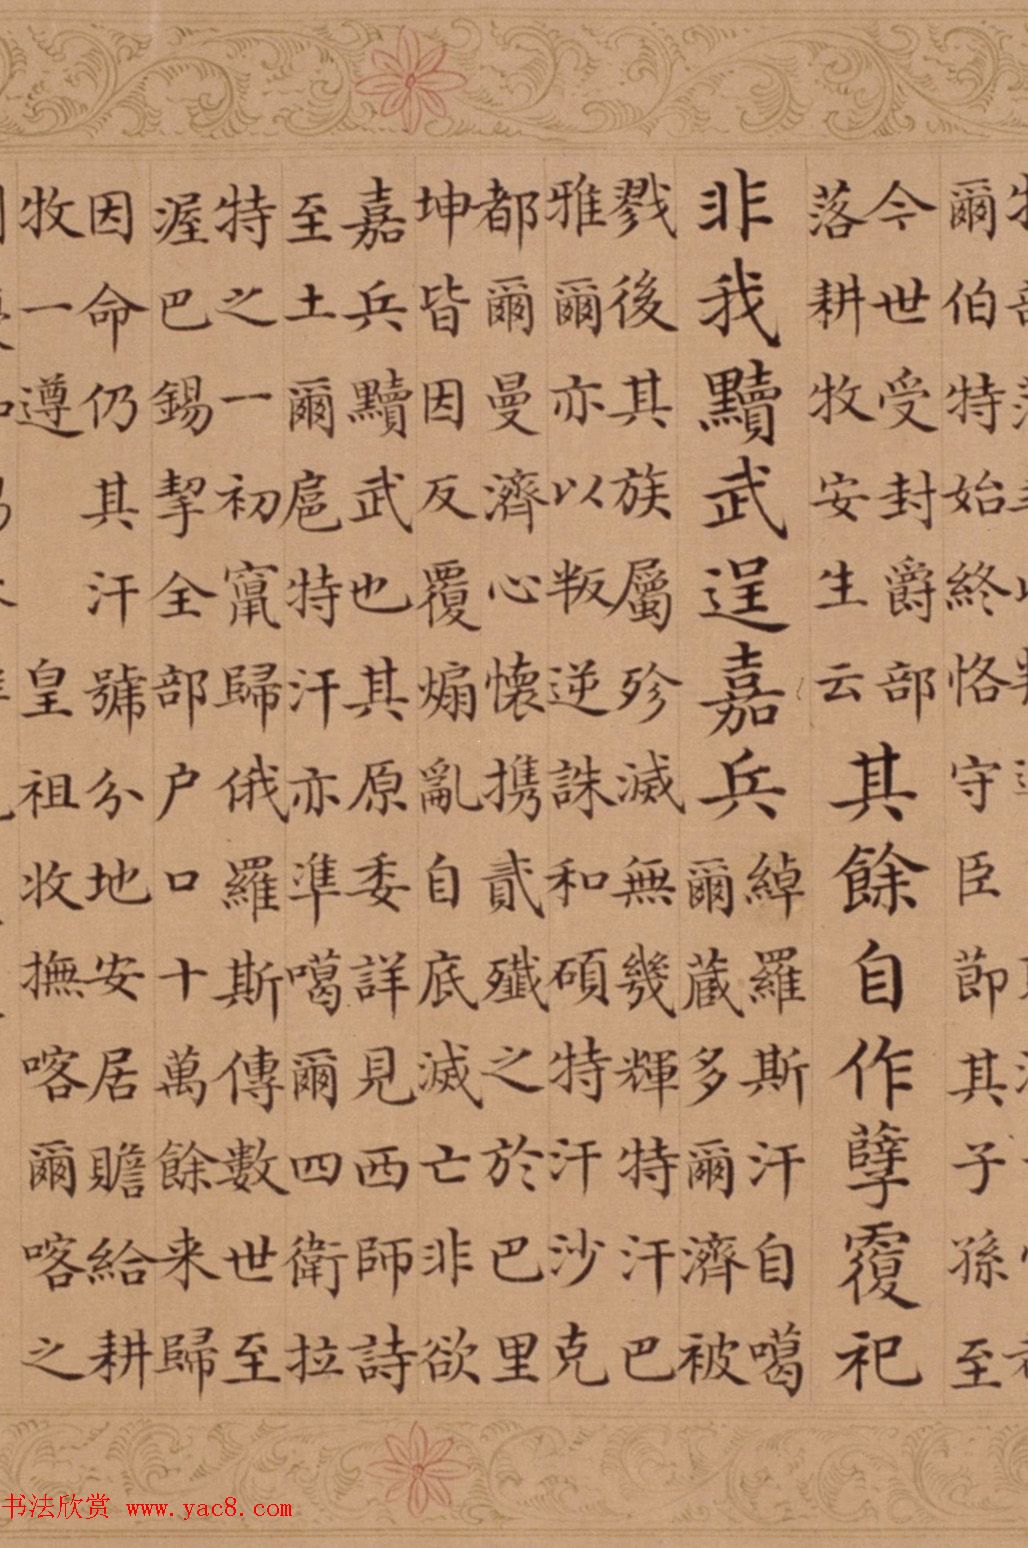 爾伯特始終恪守臣節其子孫至
今世受封爵部
落耕牧安生云
其餘自作孽覆祀
非我黷武逞嘉兵
綽羅斯汗自噶
爾蔵多爾濟被
戮後其族屬殄滅無幾輝特汗巴
雅爾亦以叛逆誅和碩特汗沙克
都爾曼濟心懷携貳殲之於巴里
坤皆因反覆煽亂自底滅亡非欲
嘉兵黷武也其原委詳見西師詩
至土爾扈特汗亦準噶爾四衛拉
特之一初竄歸俄羅斯傳數世至
渥巴錫挈全部户口十萬餘来歸
因命仍其汗號分地安居贍給耕
牧一遵 皇祖收撫喀爾喀之
书法欣赏 www.yac8.com